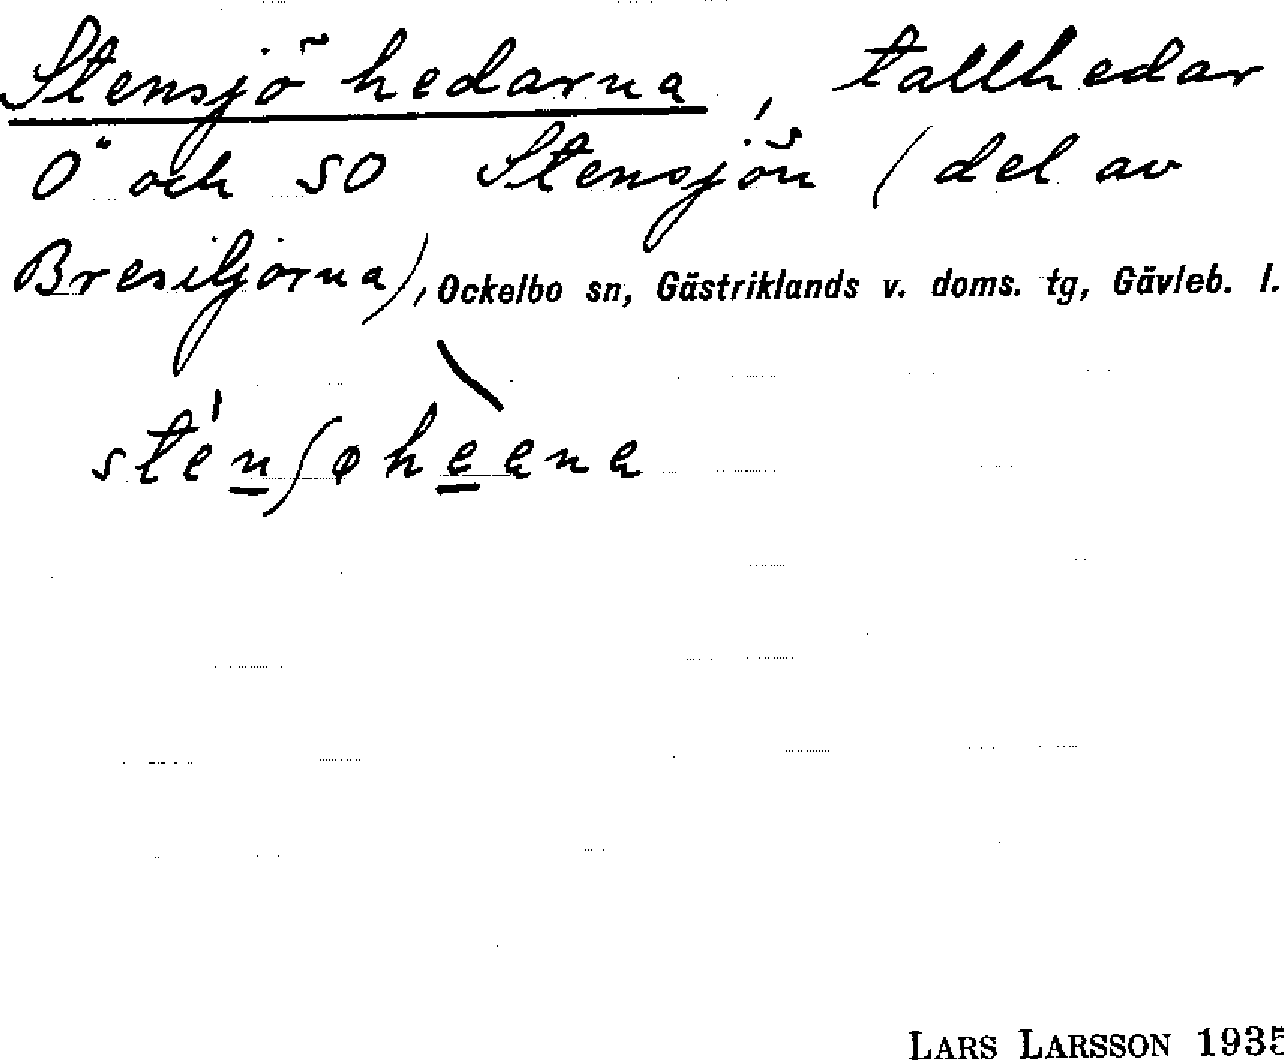 Stensjöhedarna, tallhedar
Ö och SO Stensjön (del av
Bresiljorna), Ockelbo sn, Gästriklands v. doms. tg, Gävleb. l.
LARS LARSSON 1935